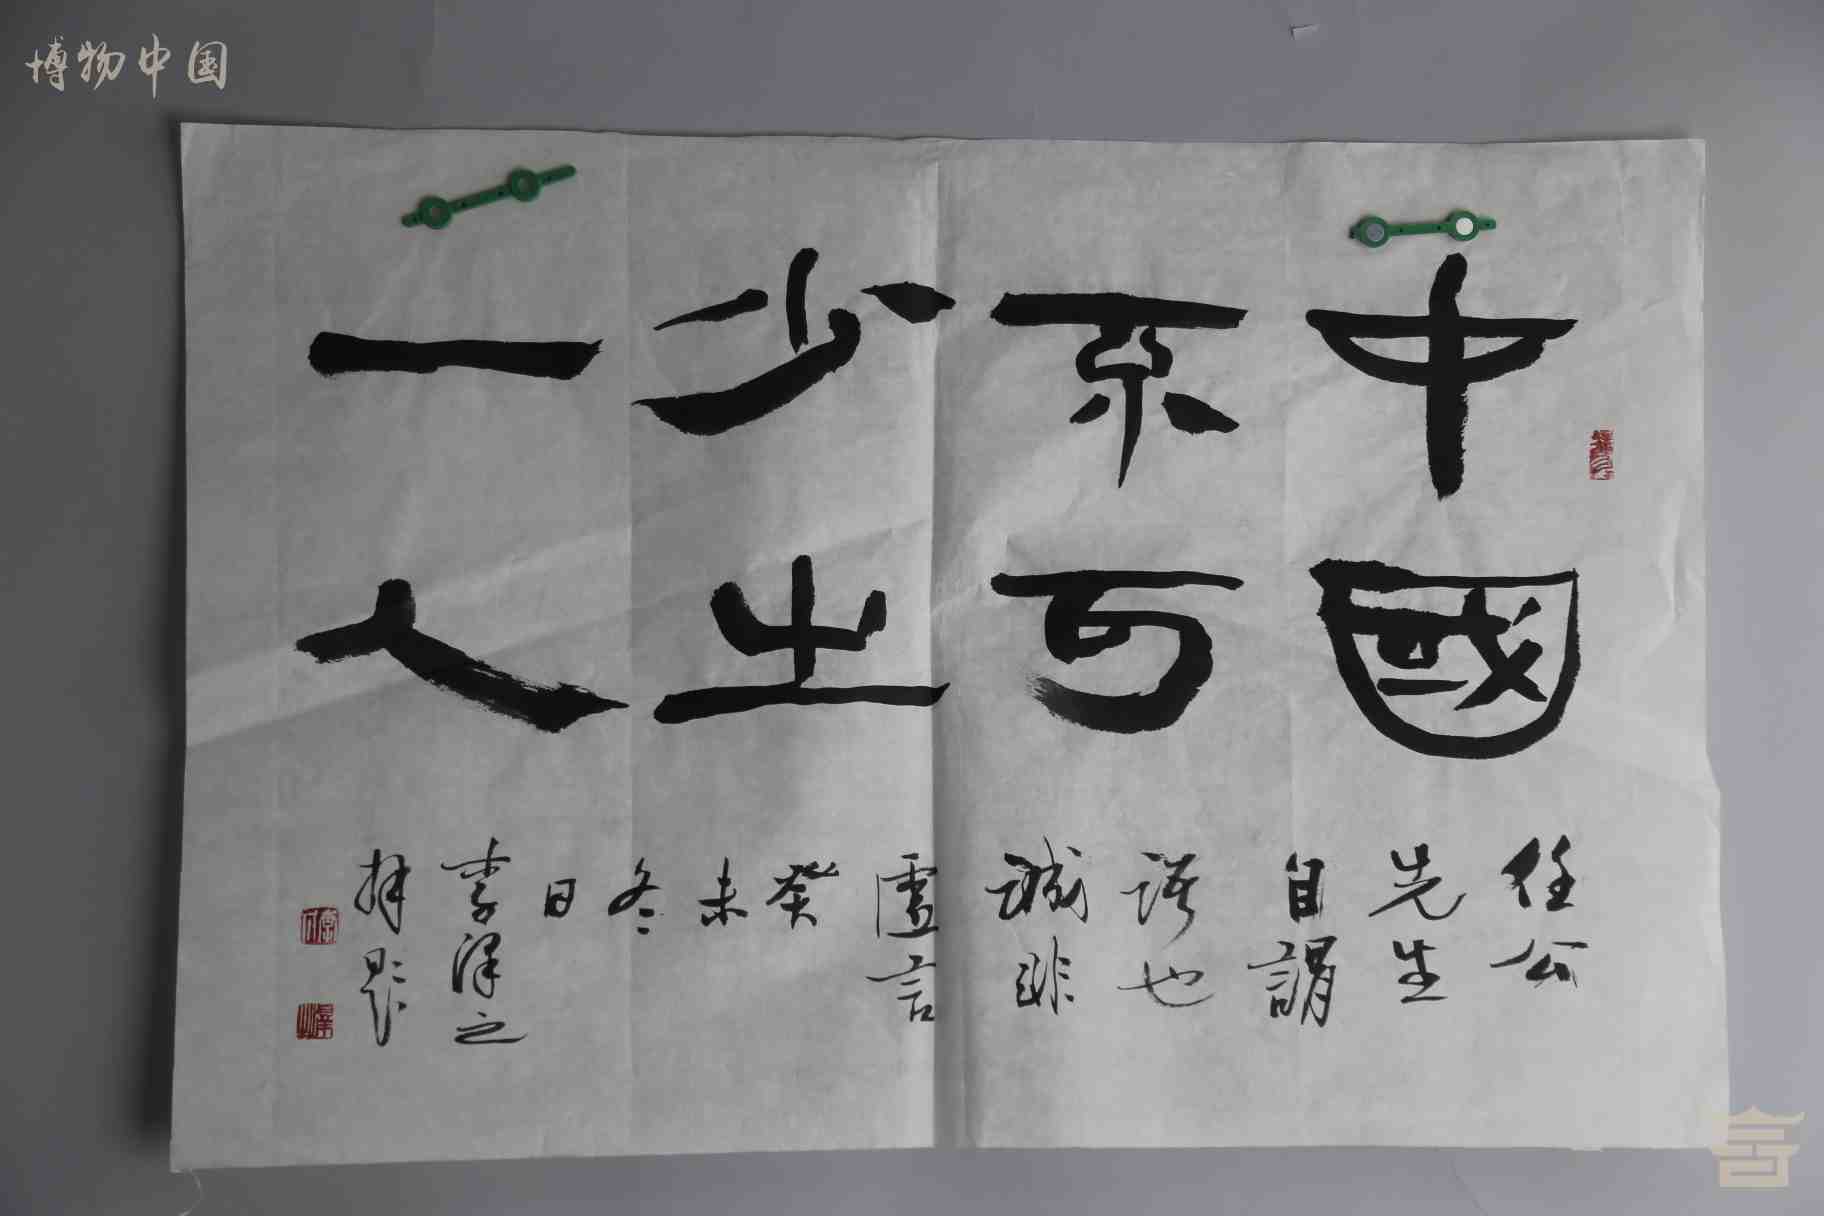 博物中国
中國
不可
少之
一人
任公
先生
自謂
語也
誠非
虛言
癸
未
冬
日
李澤之
拜題